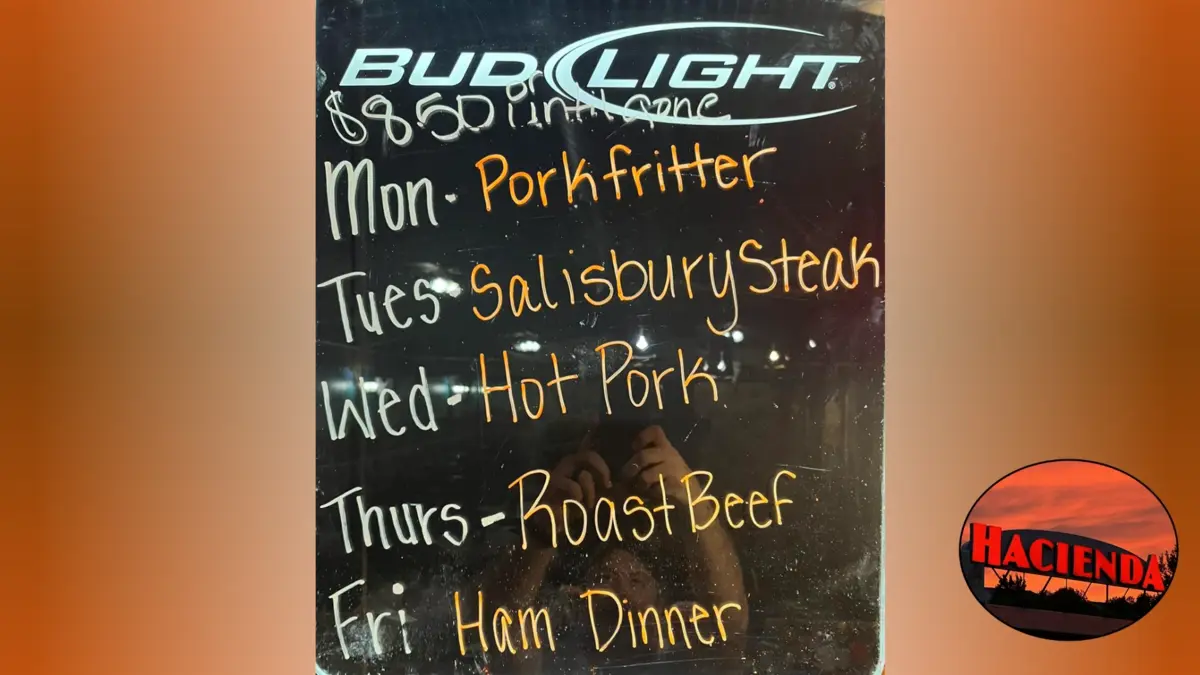 BUD LIGHT
$8.50 until gone
Mon- Pork fritter
Tues- Salisbury Steak
Wed- Hot Pork
Thurs- Roast Beef
Fri Ham Dinner
HACIENDA